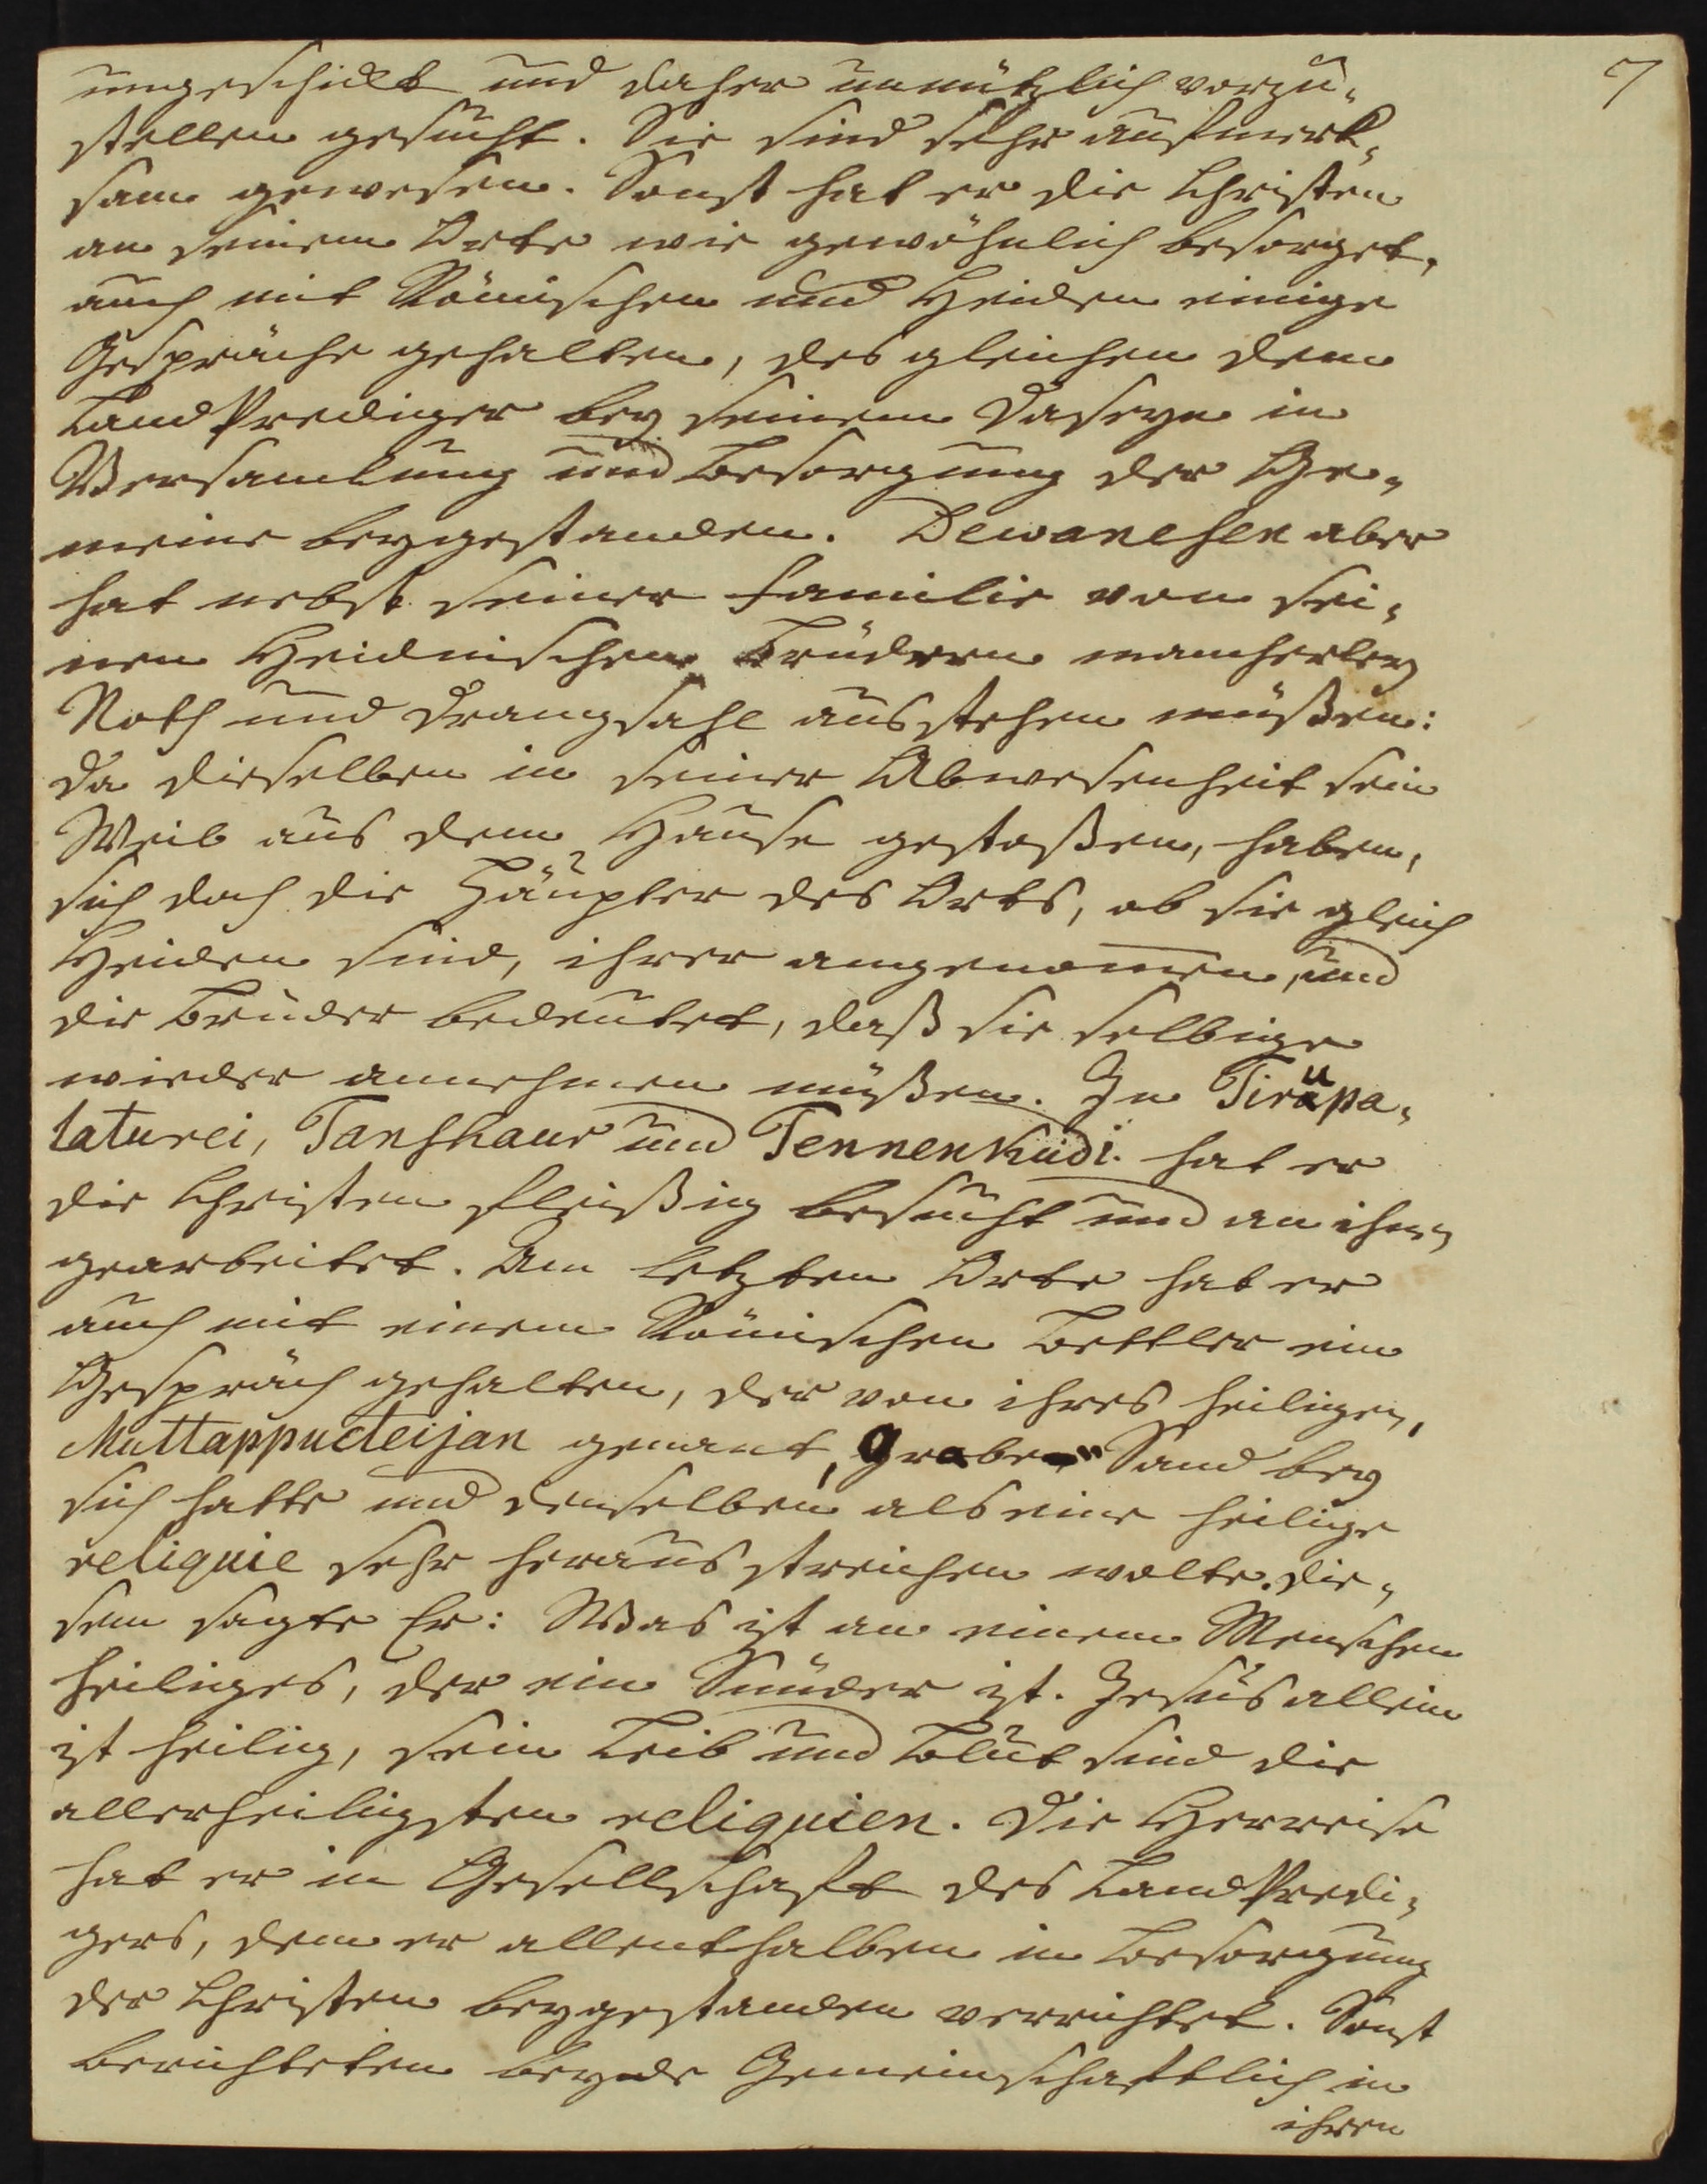 7
ungeschikt und daher unnützlich vorzu-
stellen gesucht. Sie sind sehr aufmerk-
sam gewesen. Sonst hat er die Christen
an seinem Orte wie gewöhnlich besorget,
auch mit Römischen und Heiden einige
Gespräche gehalten, des gleichen dem
LandPrediger bey seinem Daseyn in
Versamlung und Besorgung der Ge-
meine beygestanden. Dewanesen aber
hat nebst seiner Familie von sei-
nen Heidnischen Brüdern mancherley
Noth und Drangsahl ausstehen müßen:
da dieselben in seiner Abwesenheit sein
Weib aus dem Hause gestoßen, haben,
sich doch die Häupter des Orts, ob sie gleich
Heiden sind, ihrer angenomen, und
die Brüder bedeutet, daß sie selbige
wieder annehmen müßen. In Tirupa-
laturei, Tanshaur und Tennenkudi hat er
die Christen fleißig besucht und an ihnen
gearbeitet. Am letzten Orte hat er
auch mit einem Römischen Bettler ein
Gespräch gehalten, der von ihres heiligen,
Muttappudeijan genant, Grabe Sand bey
sich hatte und denselben als eine heilige
reliquie sehr herausstreichen wolte. Die-
sem sagte Er: Was ist an einem Menschen
heiliges, der ein Sünder ist. Jesus allein
ist heilig, sein Leib und Blut sind die
allerheiligsten reliquien. Die Herreise
hat er in Gesellschaft des LandPredi-
gers, dem er allenthalben in Besorgung
der Christen beygestanden verrichtet. Sonst
berichteten beyde Gemeinschaftlich in
ihren